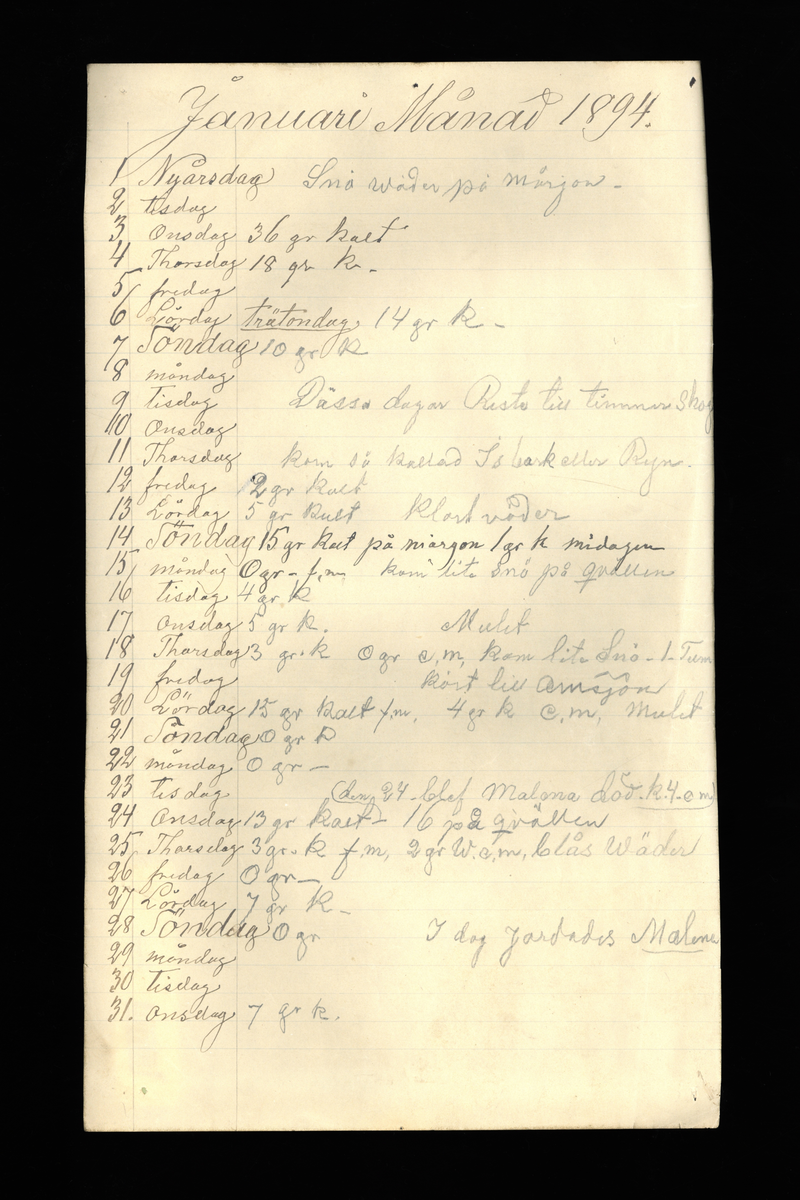 Januari Månad 1894.
1 Nyårsdag Snö wäder på mårgon -
2 tisdag
3 Onsdag 36 gr kalt
4 Thorsdag 18 gr k -
5 fredag
6 Lördag trätondag 14 gr k -
7 Söndag 10 gr k
8 måndag
9 tisdag Dässa dagar Reste till timmer skog
10 Onsdag
11 Thorsdag kom så kallad Is bark eller Ryn.
12 fredag 12 gr kalt
13 Lördag 5 gr kalt klart väder
14 Söndag 15 gr kalt på margon 1 gr k midagen
15 måndag 0 gr - f,m kom lite snö på qvällen
16 tisdag 4 gr k
17 Onsdag 5 gr k. Mulet
18 Thorsdag 3 gr. k 0 gr e,m, kom lite Snö - 1 - Tum
19 fredag kört till Amsjön
20 Lördag 15 gr kalt f,m, 4 gr k e,m, Mulet
21 Söndag 0 gr k
22 måndag 0 gr -
23 tisdag (den 24 - blef Malena död. k. 4 - e m)
24 Onsdag 13 gr kalt - 16 på qvällen
25 Thorsdag 3 gr. k f,m, 2 gr W. e,m, blås Wäder
26 fredag 0 gr -
27 Lördag 7 gr k -
28 Söndag 0 gr I dag Jordades Malena
29 måndag
30 tisdag
31. Onsdag 7 gr k.